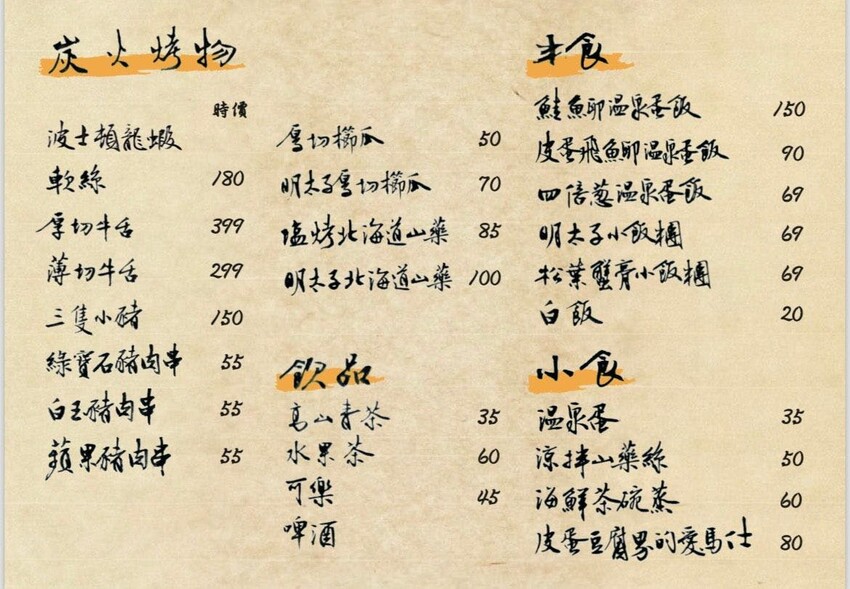 炭火烤物
時價
波士頓龍蝦
軟絲 180
厚切牛舌 399
薄切牛舌 299
三隻小豬 150
綠寶石豬肉串 55
白玉豬肉串 55
蘋果豬肉串 55
厚切櫛瓜 50
明太子厚切櫛瓜 70
塩烤北海道山藥 85
明太子北海道山藥 100
飲品
高山青茶 35
水果茶 60
可樂 45
啤酒
丰食
鮭魚卵溫泉蛋飯 150
皮蛋飛魚卵溫泉蛋飯 90
四倍蔥溫泉蛋飯 69
明太子小飯糰 69
松葉蟹膏小飯糰 69
白飯 20
小食
溫泉蛋 35
涼拌山藥絲 50
海鮮茶碗蒸 60
皮蛋豆腐界的愛馬仕 80